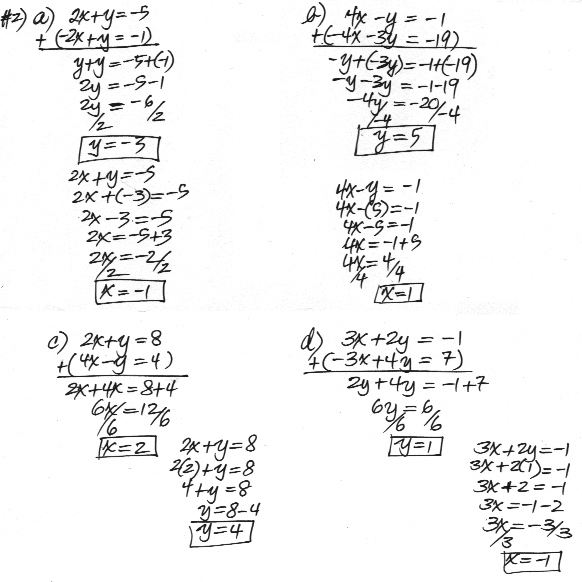 #2) a) 2x+y=-5
+ (-2x+y=-1)
y+y=-5+(-1)
2y=-5-1
2y=-6
/2 /2
y=-3
2x+y=-5
2x+(-3)=-5
2x-3=-5
2x=-5+3
2x=-2
/2 /2
x=-1
b) 4x-y=-1
+(-4x-3y=-19)
-y+(-3y)=-1+(-19)
-y-3y=-1-19
-4y=-20
/-4 /-4
y=5
4x-y=-1
4x-(5)=-1
4x-5=-1
4x=-1+5
4x=4
/4 /4
x=1
c) 2x+y=8
+(4x-y=4)
2x+4x=8+4
6x=12
/6 /6
x=2
2x+y=8
2(2)+y=8
4+y=8
y=8-4
y=4
d) 3x+2y=-1
+(-3x+4y=7)
2y+4y=-1+7
6y=6
/6 /6
y=1
3x+2y=-1
3x+2(1)=-1
3x+2=-1
3x=-1-2
3x=-3
/3 /3
x=-1